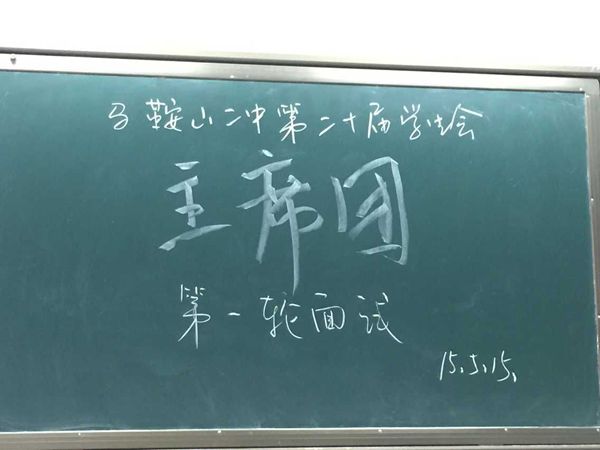 马鞍山二中第二十届学生会
主席团
第一轮面试
15.5.15.